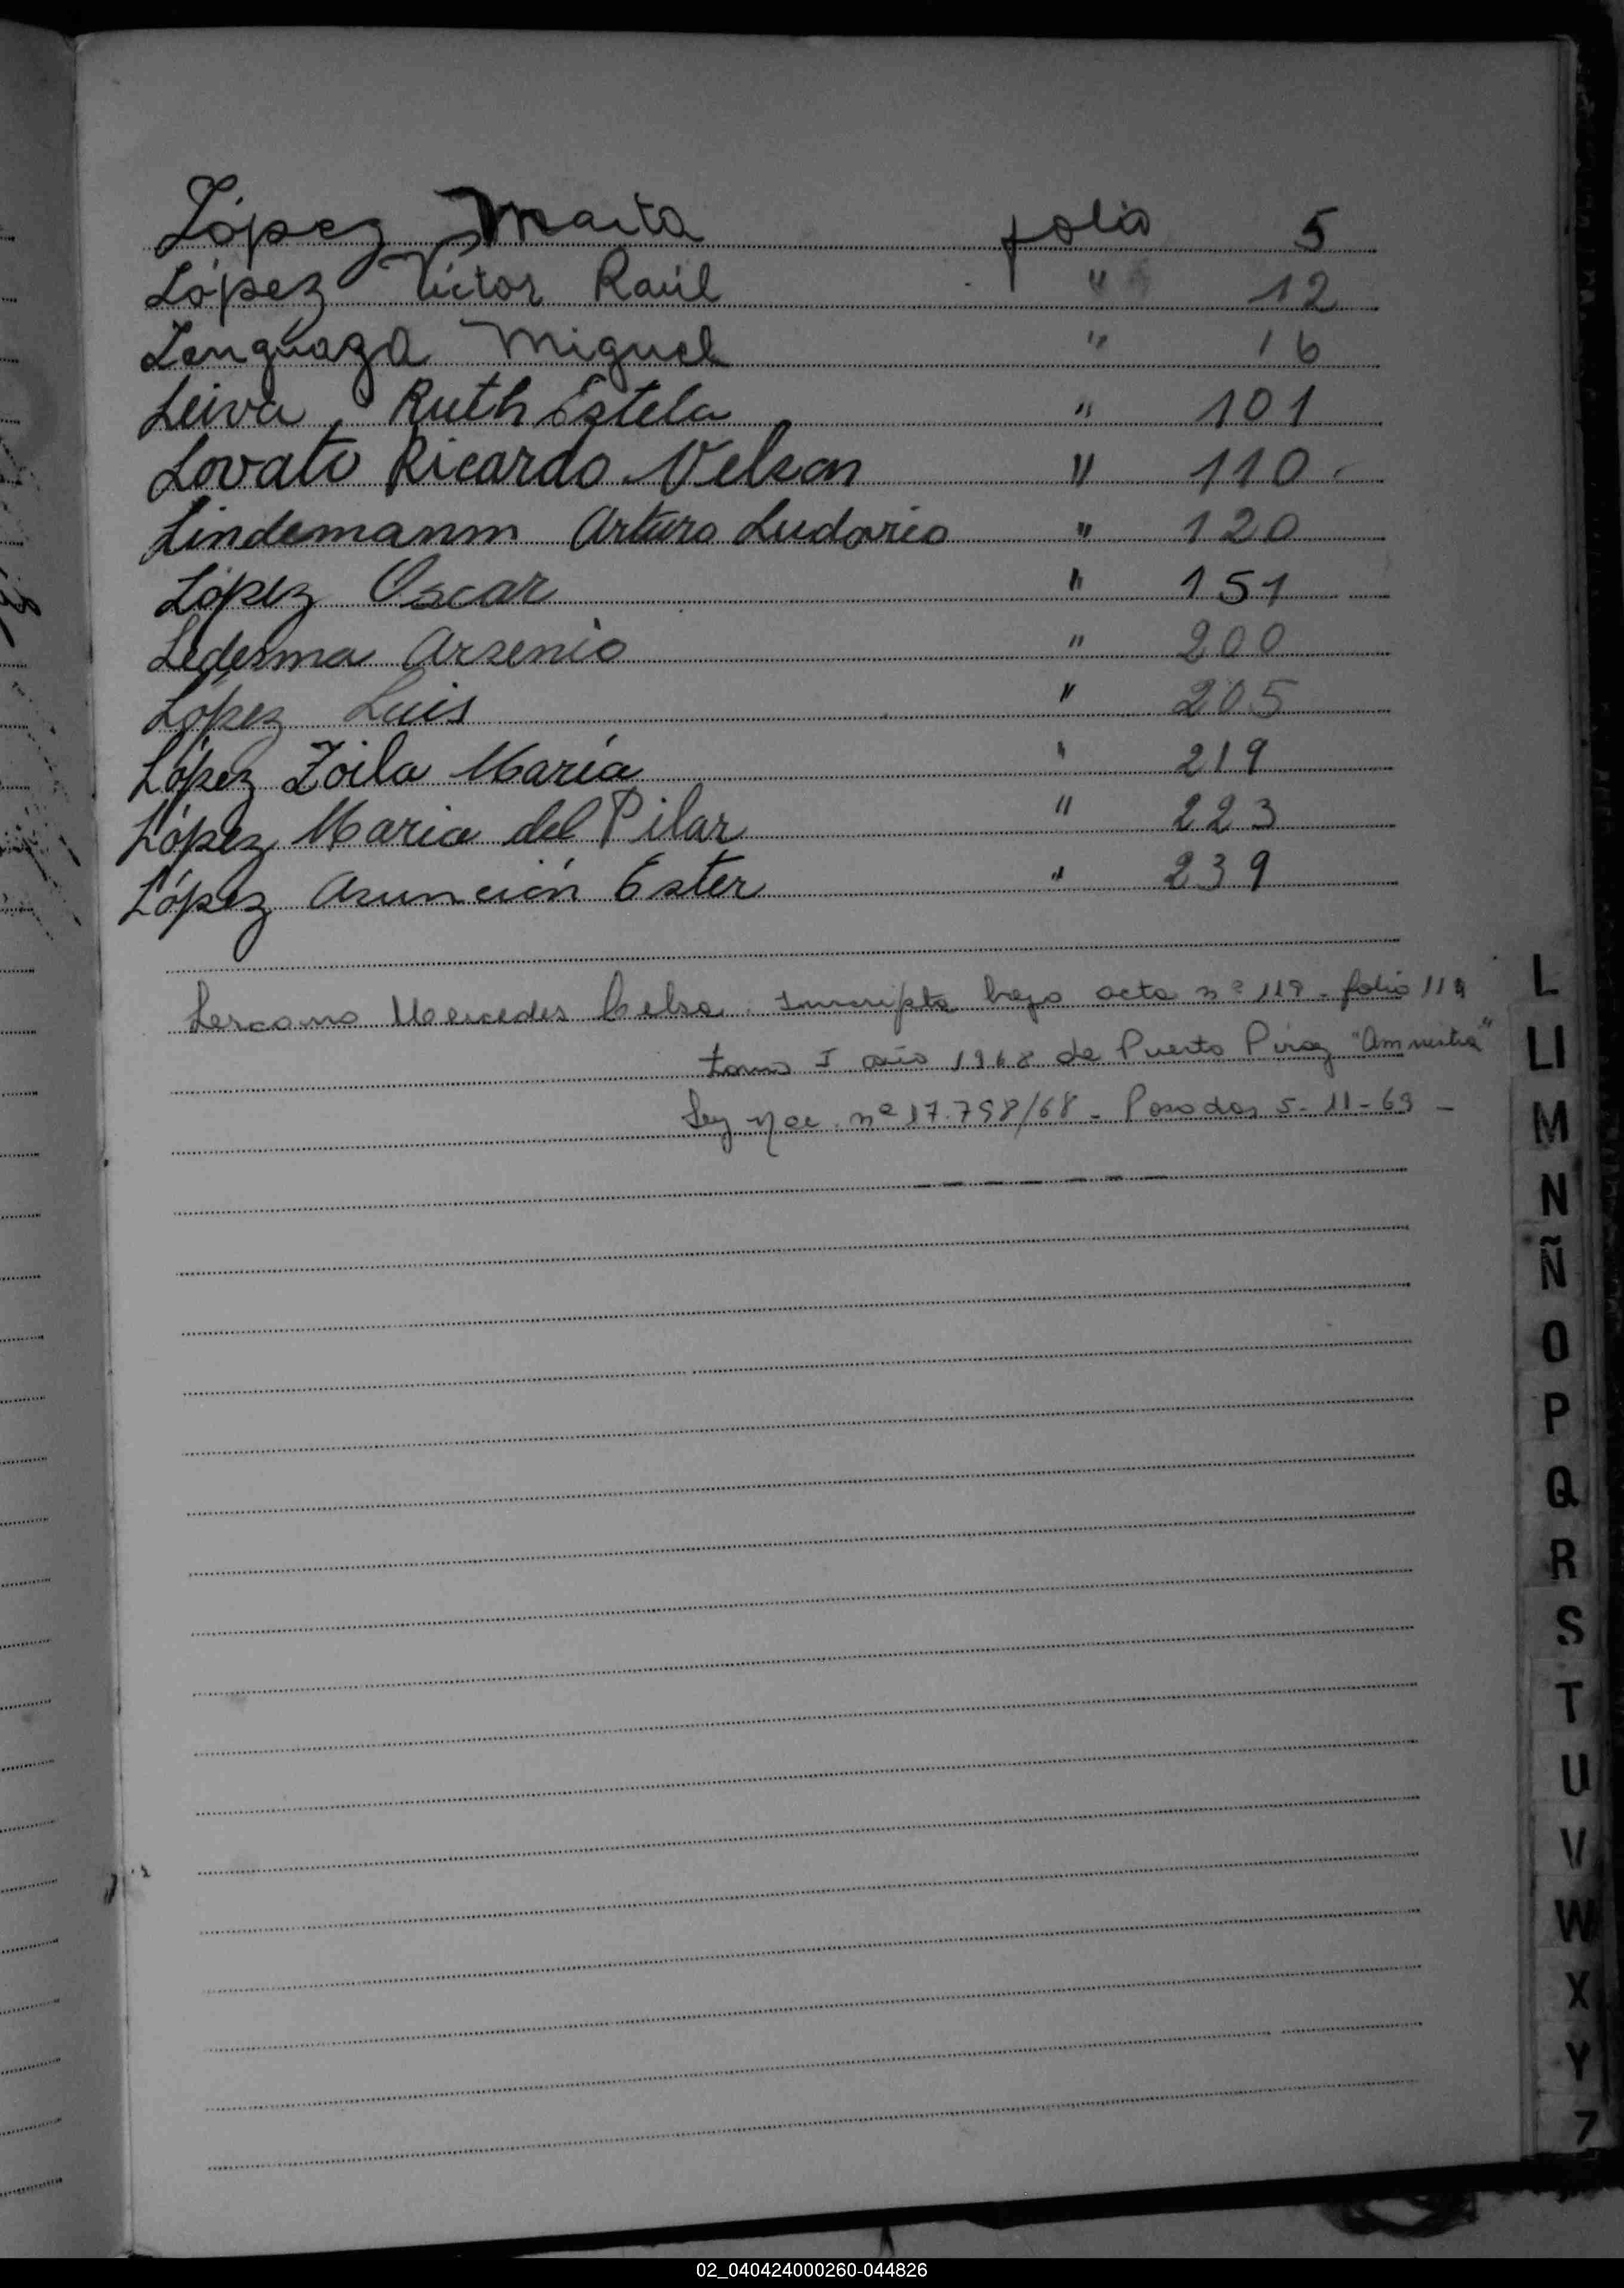 López Marta folio 5
López Victor Raúl " 12
Lenguaza Miguel " 16
Leiva, Ruth Estela " 101
Lovato Ricardo Nelson " 110
Lindemann Arturo Ludovico " 120
López Oscar " 151
Ledesma Arsenio " 200
López Luis " 205
López Zoila María " 219
López Maria del Pilar " 223
López Asunción Ester " 239
Lercano Mercedes Celsa. Inscripta bajo acta nº 119 - folio 119
tomo I año 1968 de Puerto Piray "Amnistia"
Ley nº 17.798/68 - Posadas 5-11-69 -
L
Ll
M
N
Ñ
O
P
Q
R
S
T
U
V
W
X
Y
Z
02_040424000260-044826